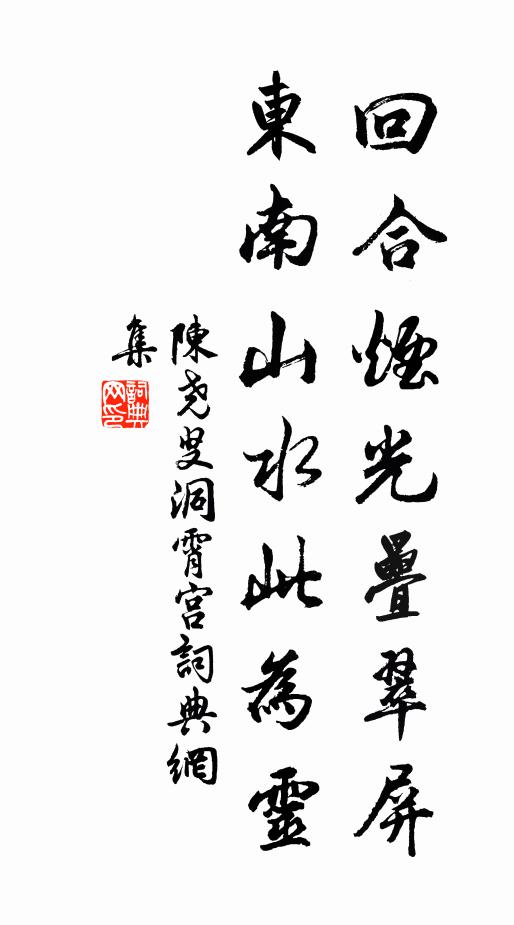 回合煙光疊翠屏
東南山水此為靈
陳尧叟洞霄宫詞典網
集
詞典
网印